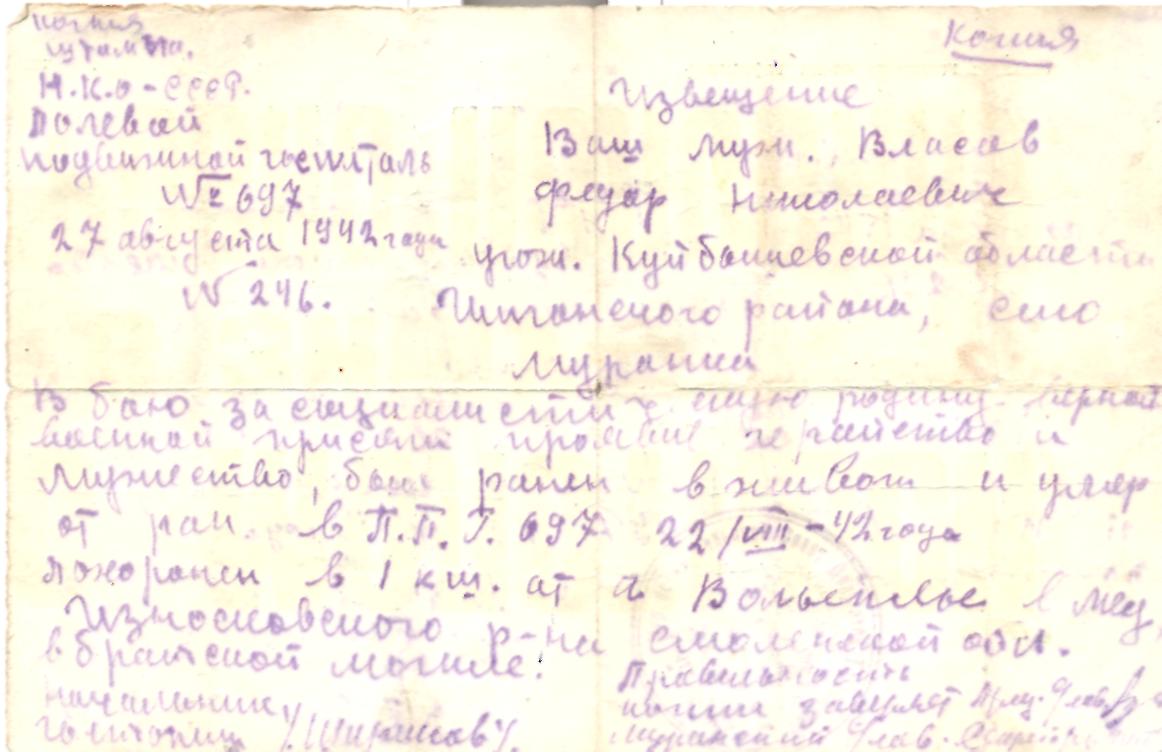 Копия
штампа.
Н.К.О - СССР.
Полевой
подвижной госпиталь
№ 697
27 августа 1942 года
N 246.
Копия
Извещение
Ваш муж., Власов
Федор Николаевич
урож. Куйбышевской области
района, село
Муранка
В бою за социалистическую родину верный
военной присяги проявив геройство и
мужество, был ранен в живот и умер
от ран. в П.П.Г. 697 22/VIII-42 года
похоронен в 1 км. от
Износковского р-на смоленской обл.
в братской могиле.
начальник
госпиталя
Правильность
копии заверяет